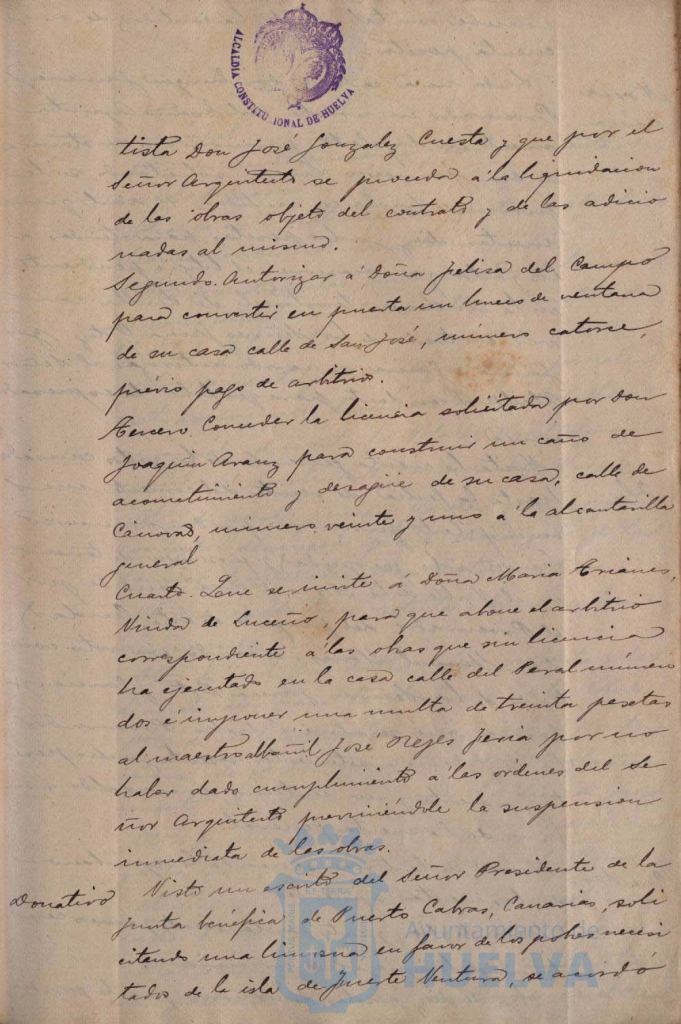 ALCALDIA CONSTITUCIONAL DE HUELVA
tista Don José Gonzalez Cuesta y que por el
Señor Arquitecto se proceda á la liquidacion
de las obras objeto del contrato y de las adicio
nadas al mismo.
Segundo. Autorizar á Doña Felisa del Campo
para convertir en puerta un hueco de ventana
de su casa calle de San José, número catorce,
prévio pago de arbitrios.
Tercero. Conceder la licencia solicitada por Don
Joaquin Aranz para construir un caño de
acometimiento y desagüe de su casa, calle de
Cánovas, número veinte y uno á la alcantarilla
general
Cuarto. Que se invite á Doña Maria Trianes,
Viuda de Luceño, para que abone el arbitrio
correspondiente á las obras que sin licencia
ha ejecutado en la casa calle del Peral número
dos é imponer una multa de treinta pesetas
al maestro albañil José Reyes Feria por no
haber dado cumplimiento á las órdenes del Se
ñor Arquitecto previniéndole la suspension
inmediata de las obras.
Donativo
Visto un escrito del Señor Presidente de la
junta benéfica de Puerto Cabras, Canarias, soli
citando una limosna en favor de los pobres necesi
tados de la isla de Fuerte Ventura, se acordó
Ayuntamiento de
HUELVA